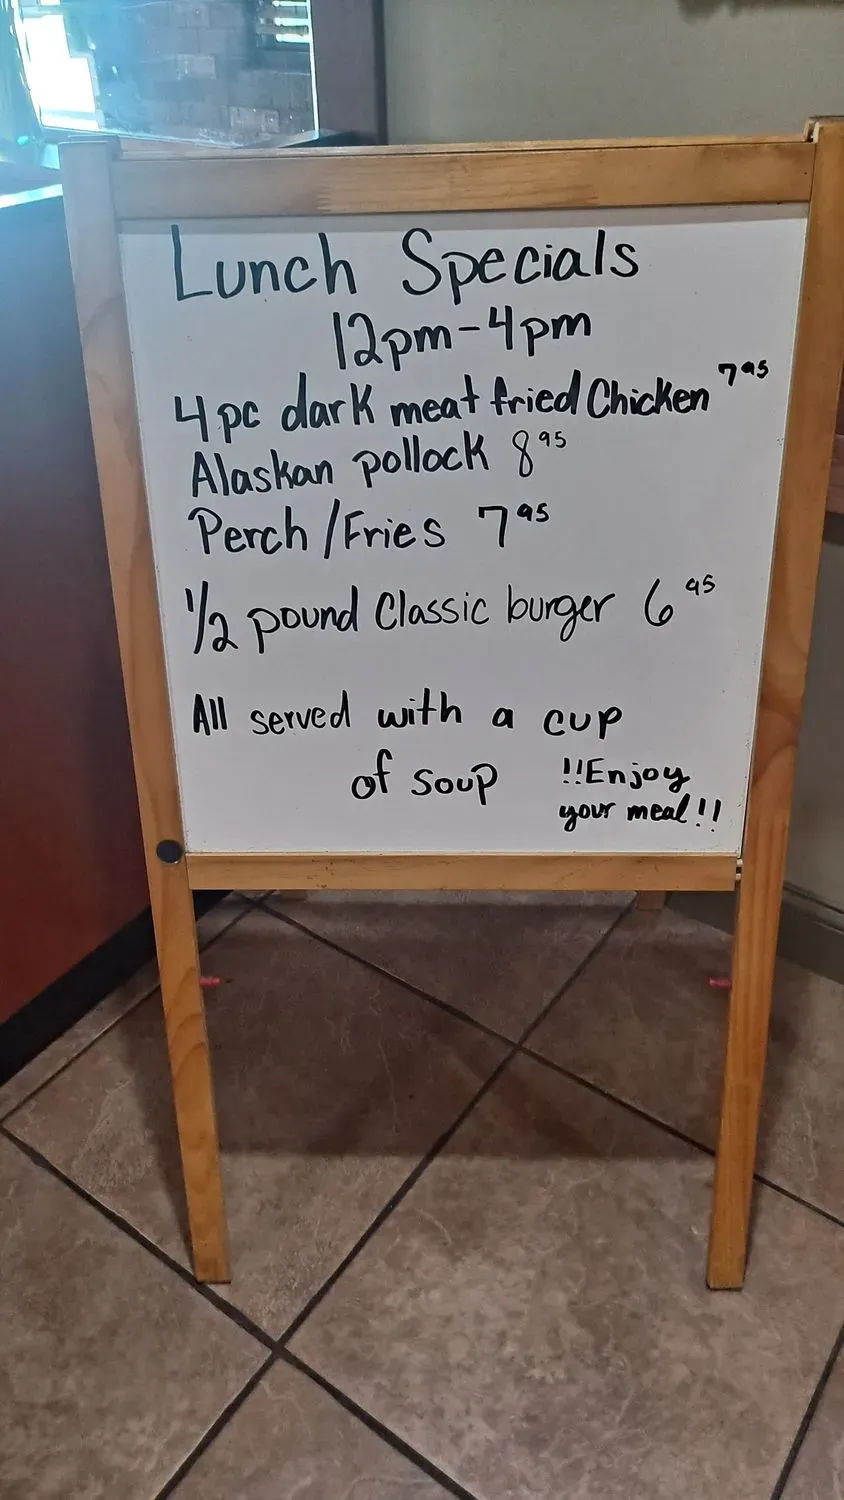 Lunch Specials
12pm-4pm
4pc dark meat fried Chicken 7 95
Alaskan pollock 8 95
Perch/Fries 7 95
1/2 pound Classic burger 6 95
All served with a cup
of soup
!!Enjoy
your meal!!